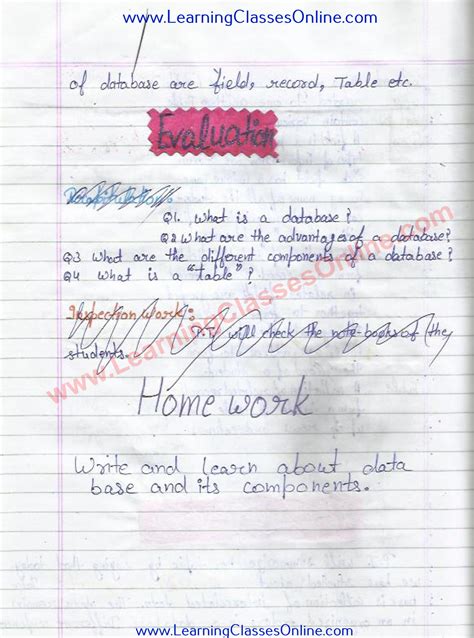 www.LearningClassesOnline.com
of database are field, record, Table etc.
Evaluation
Recapitulation:
Q1. What is a database?
Q2 What are the advantages of a database?
Q3 What are the different components of a database?
Q4 What is a "table"?
www.LearningClassesOnline.com
Inspection Work:
P.T. will check the note-books of the
students.
Home work
Write and learn about data
base and its components.
www.LearningClassesOnline.com